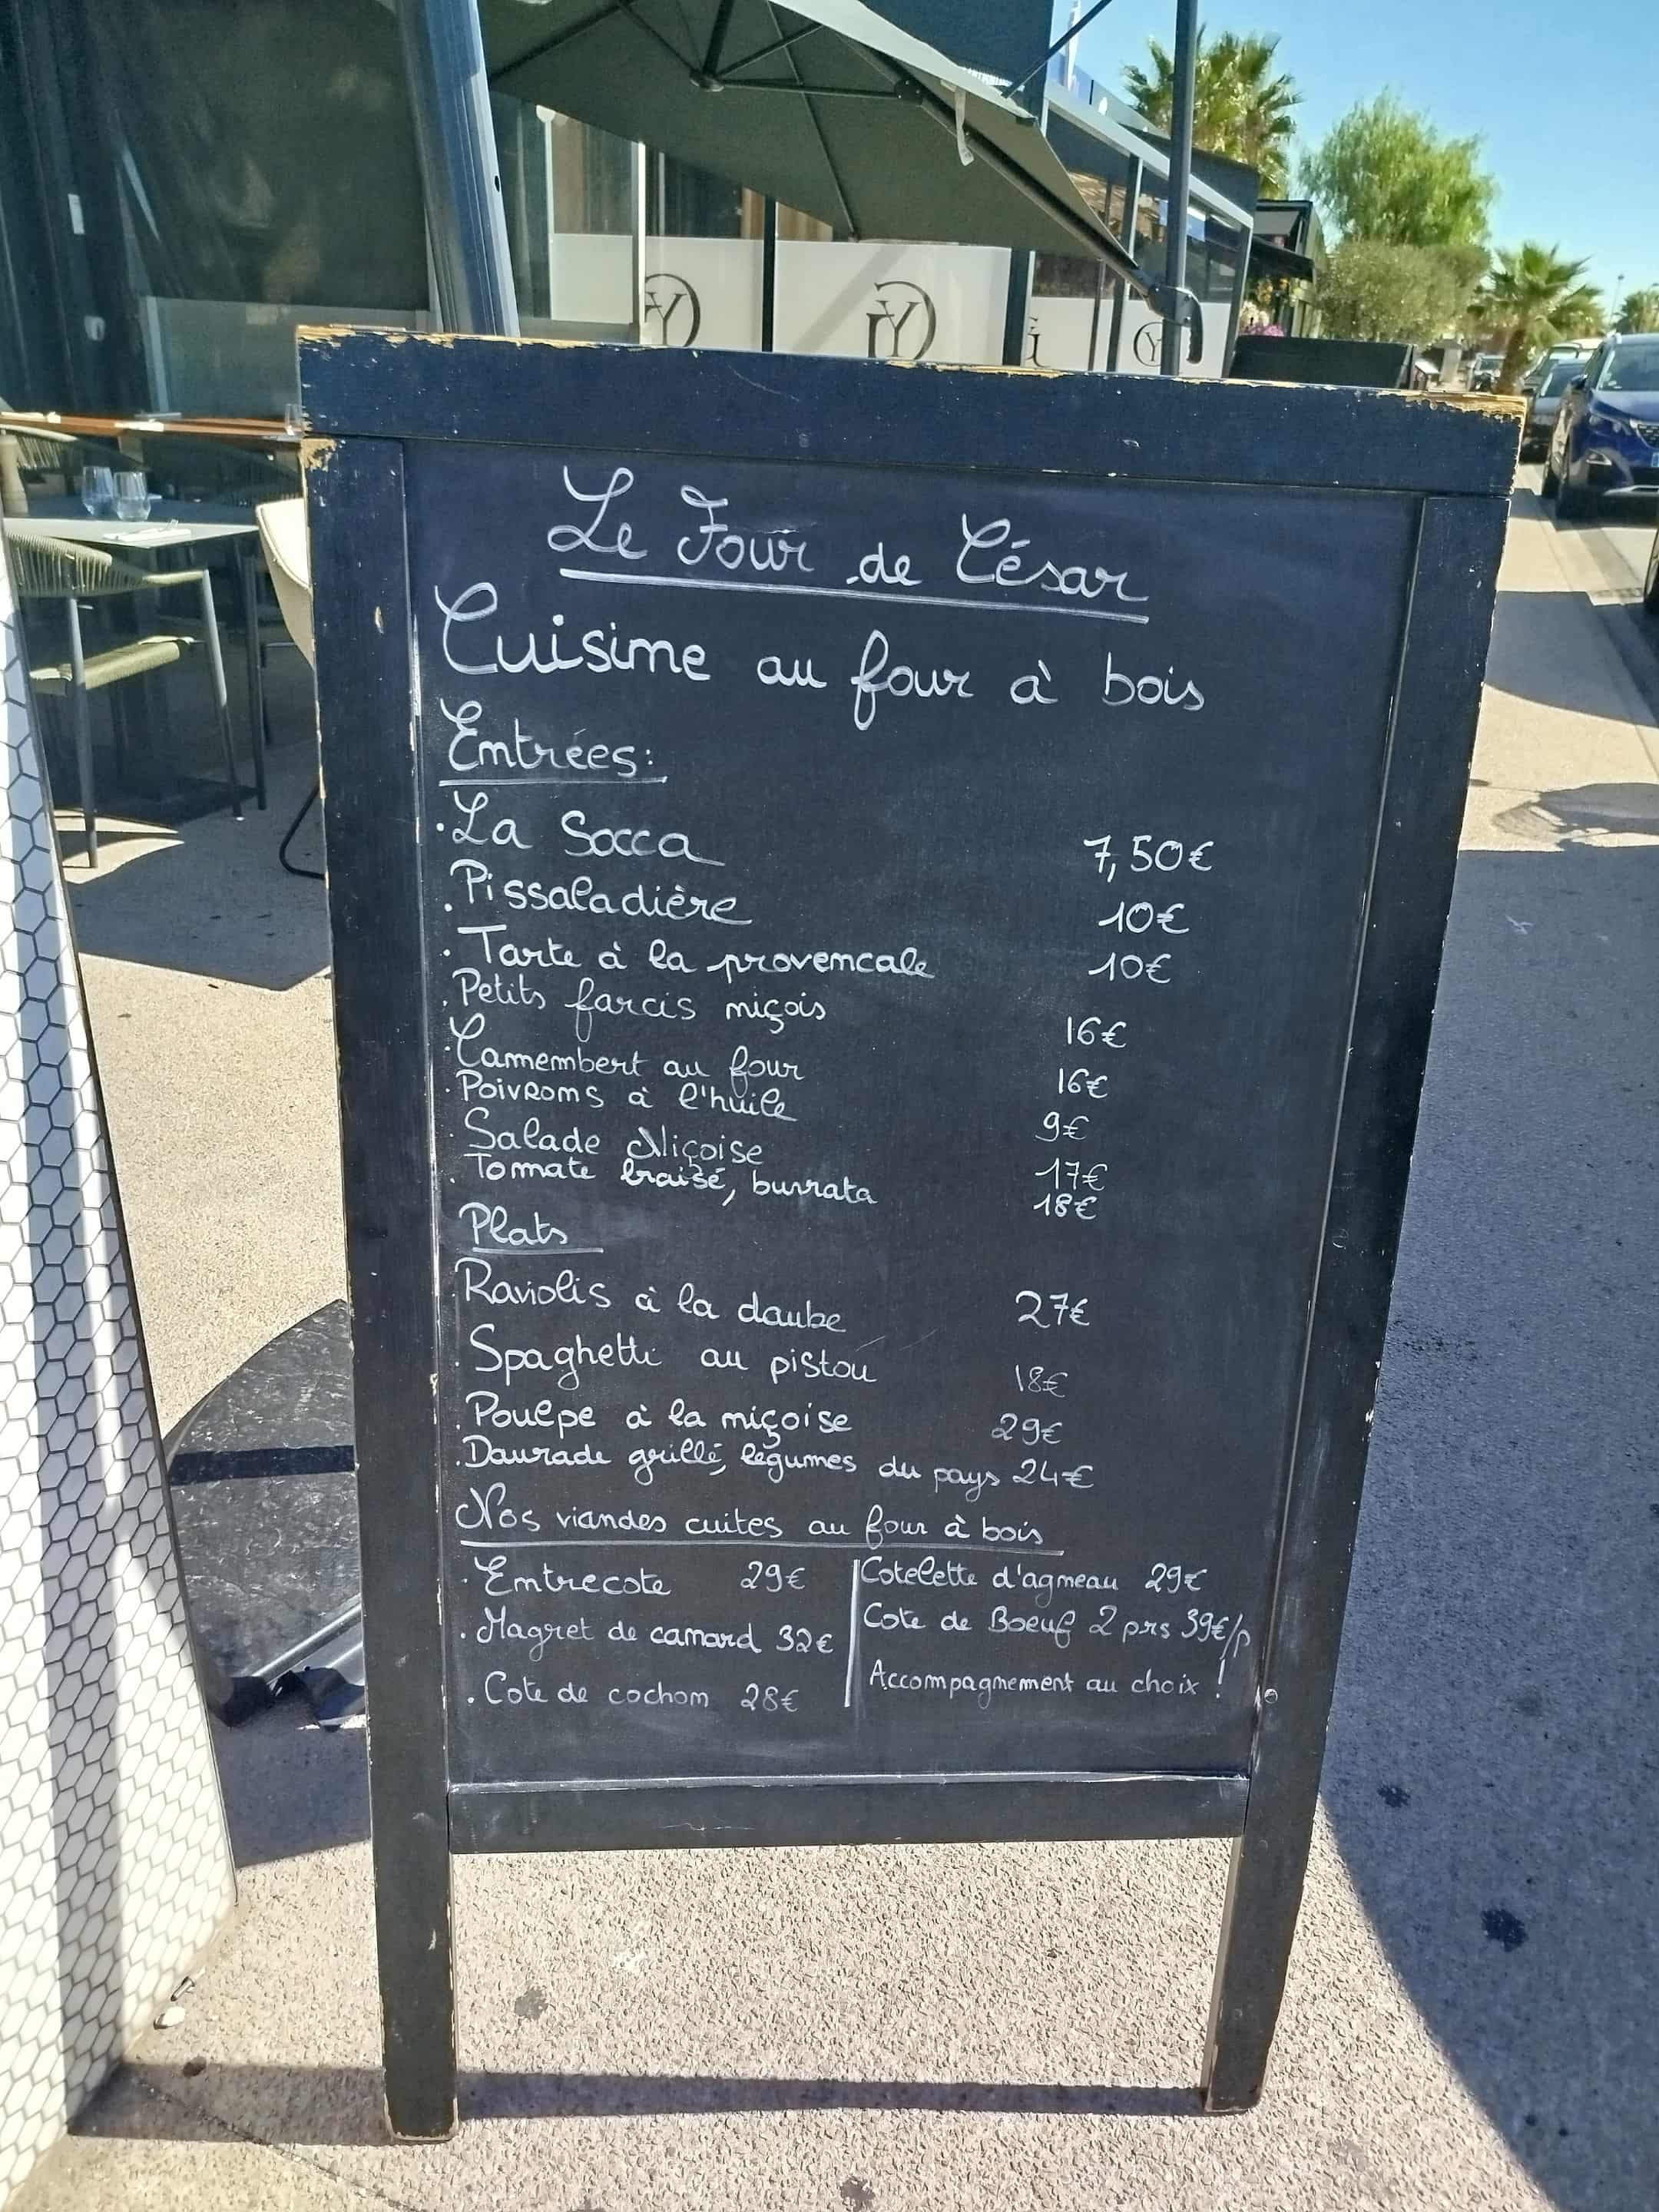 Le Four de César
Cuisine au four à bois
Entrées:
. La Socca 7,50€
. Pissaladière 10€
. Tarte à la provencale 10€
. Petits farcis niçois 16€
. Camembert au four 16€
. Poivrons à l'huile 9€
. Salade Niçoise 17€
. Tomate braisé, burrata 18€
Plats
Raviolis à la daube 27€
. Spaghetti au pistou 18€
. Poulpe à la niçoise 29€
. Daurade grillé, légumes du pays 24€
Nos viandes cuites au four à bois
. Entrecote 29€
. Magret de canard 32€
. Cote de cochon 28€
Cotelette d'agneau 29€
Cote de Boeuf 2 prs 39€/p
Accompagnement au choix !